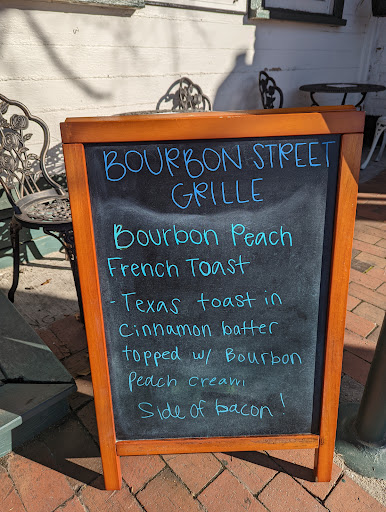 BOURBON STREET
GRILLE
Bourbon Peach
French Toast
- Texas toast in
Cinnamon batter
topped w/ Bourbon
Peach cream.
Side of bacon!